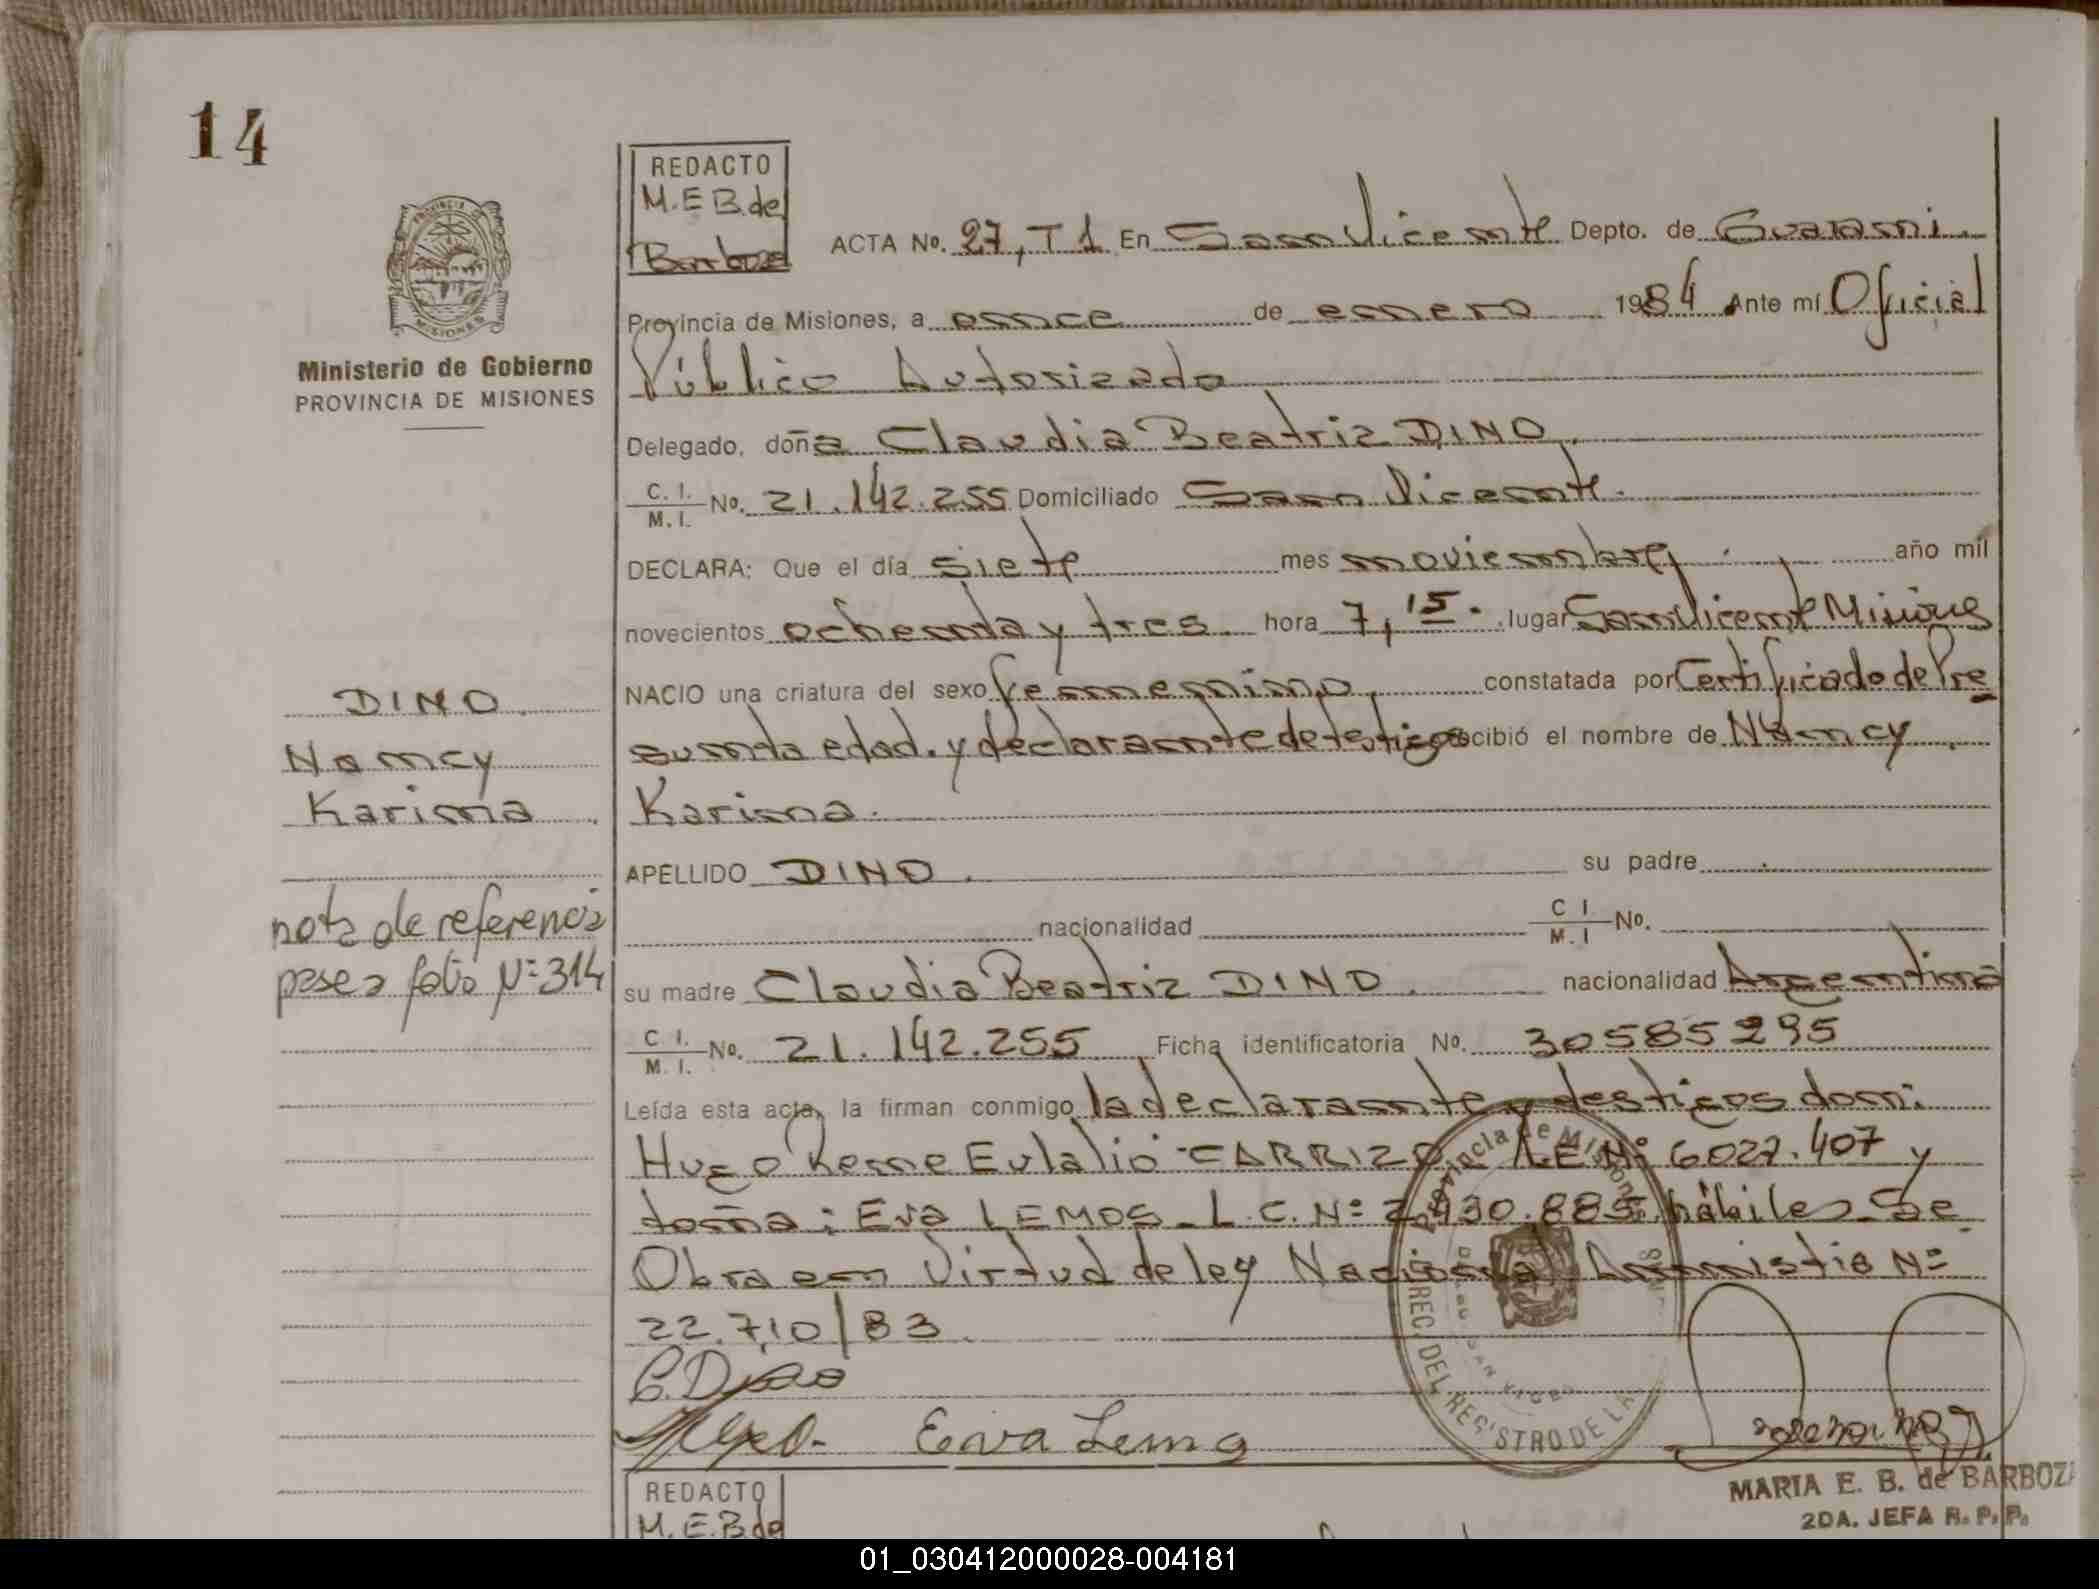 14
REDACTO
M.E B. de
Barboza
ACTA No. 27, T 1 En San Vicente Depto. de Guarani.
Provincia de Misiones, a once de enero 1984 Ante mí Oficial
Público Autorizado
Ministerio de Gobierno
PROVINCIA DE MISIONES
Delegado, doña Claudia Beatriz DINO.
C. I. / M. I. No. 21.142.255 Domiciliado San Vicente.
DECLARA: Que el día siete mes noviembre año mil
novecientos ochenta y tres hora 7,15. lugar San Vicente Misiones
NACIO una criatura del sexo femenino, constatada por Certificado de Pre
sunta edad. y declarante de testigos recibió el nombre de Nancy
Karina.
DINO.
Nancy
Karina.
APELLIDO DINO. su padre
nacionalidad C I / M. I No.
nota de referencia
pase a folio Nº 314
su madre Claudia Beatriz DINO. nacionalidad Argentina
C I. / M. I. No. 21.142.255 Ficha identificatoria No. 30585295
Leída esta acta, la firman conmigo la declarante y testigos don:
Hugo Rene Eulalio CARRIZO L.E Nº 6027.407 y
doña: Eva LEMOS_L.C.Nº 2.930.885 hábiles Se
Obra en Virtud de ley Nacional Amnistia Nº
22.710/83.
C. Dino
Eva Lemo
Provincia de Misiones
REC. DEL REGISTRO DE LA
MARIA E. B. de BARBOZA
2DA. JEFA R. P. P.
REDACTO
M. E. B. de
01_030412000028-004181